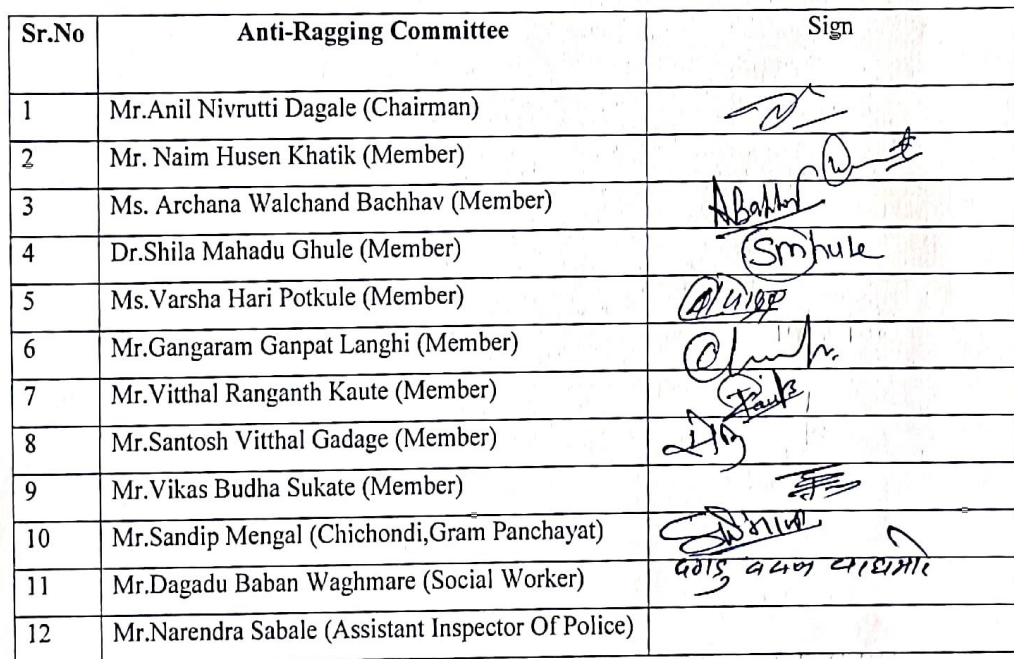 Sr.No Anti-Ragging Committee Sign
1 Mr.Anil Nivrutti Dagale (Chairman)
2 Mr. Naim Husen Khatik (Member)
3 Ms. Archana Walchand Bachhav (Member)
4 Dr.Shila Mahadu Ghule (Member) SMhule
5 Ms.Varsha Hari Potkule (Member)
6 Mr.Gangaram Ganpat Langhi (Member)
7 Mr.Vitthal Ranganth Kaute (Member)
8 Mr.Santosh Vitthal Gadage (Member)
9 Mr.Vikas Budha Sukate (Member)
10 Mr.Sandip Mengal (Chichondi,Gram Panchayat)
11 Mr.Dagadu Baban Waghmare (Social Worker)
12 Mr.Narendra Sabale (Assistant Inspector Of Police)